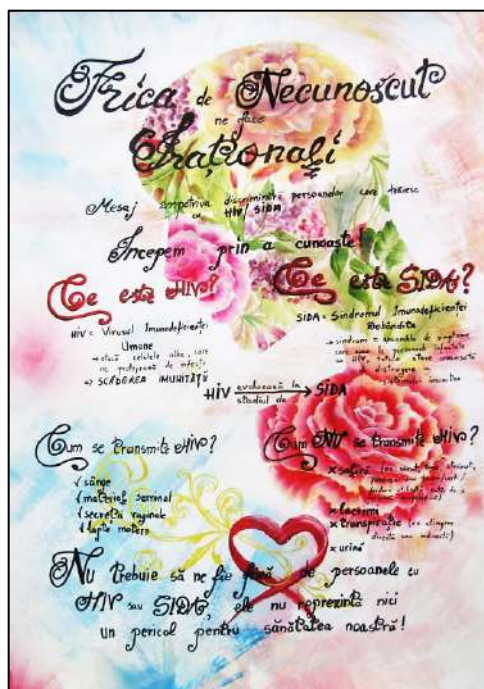 Frica de Necunoscut
ne face
Iraționali
Mesaj împotriva discriminării persoanelor care trăiesc
cu HIV/SIDA
Începem prin a cunoaște!
Ce este HIV?
Ce este SIDA?
HIV = Virusul Imunodeficienței
Umane
→ atacă celulele albe, care
ne protejează de infecții
=> SCĂDEREA IMUNITĂȚII
SIDA = Sindromul Imunodeficienței
Dobândite
→ sindrom = ansamblu de
care apar la persoanele infectate
cu HIV,
sistemului imunitar
HIV evoluează la stadiul de SIDA
Cum se transmite HIV?
√ sânge
√ material seminal
√ secreții vaginale
√ lapte matern
Cum NU se transmite HIV?
x salivă
x lacrimi
x transpirație (cu atingere
directă sau indirectă)
x urină
Nu trebuie să ne fie frică de persoanele cu
HIV sau SIDA, ele nu reprezintă nici
un pericol pentru sănătatea noastră!